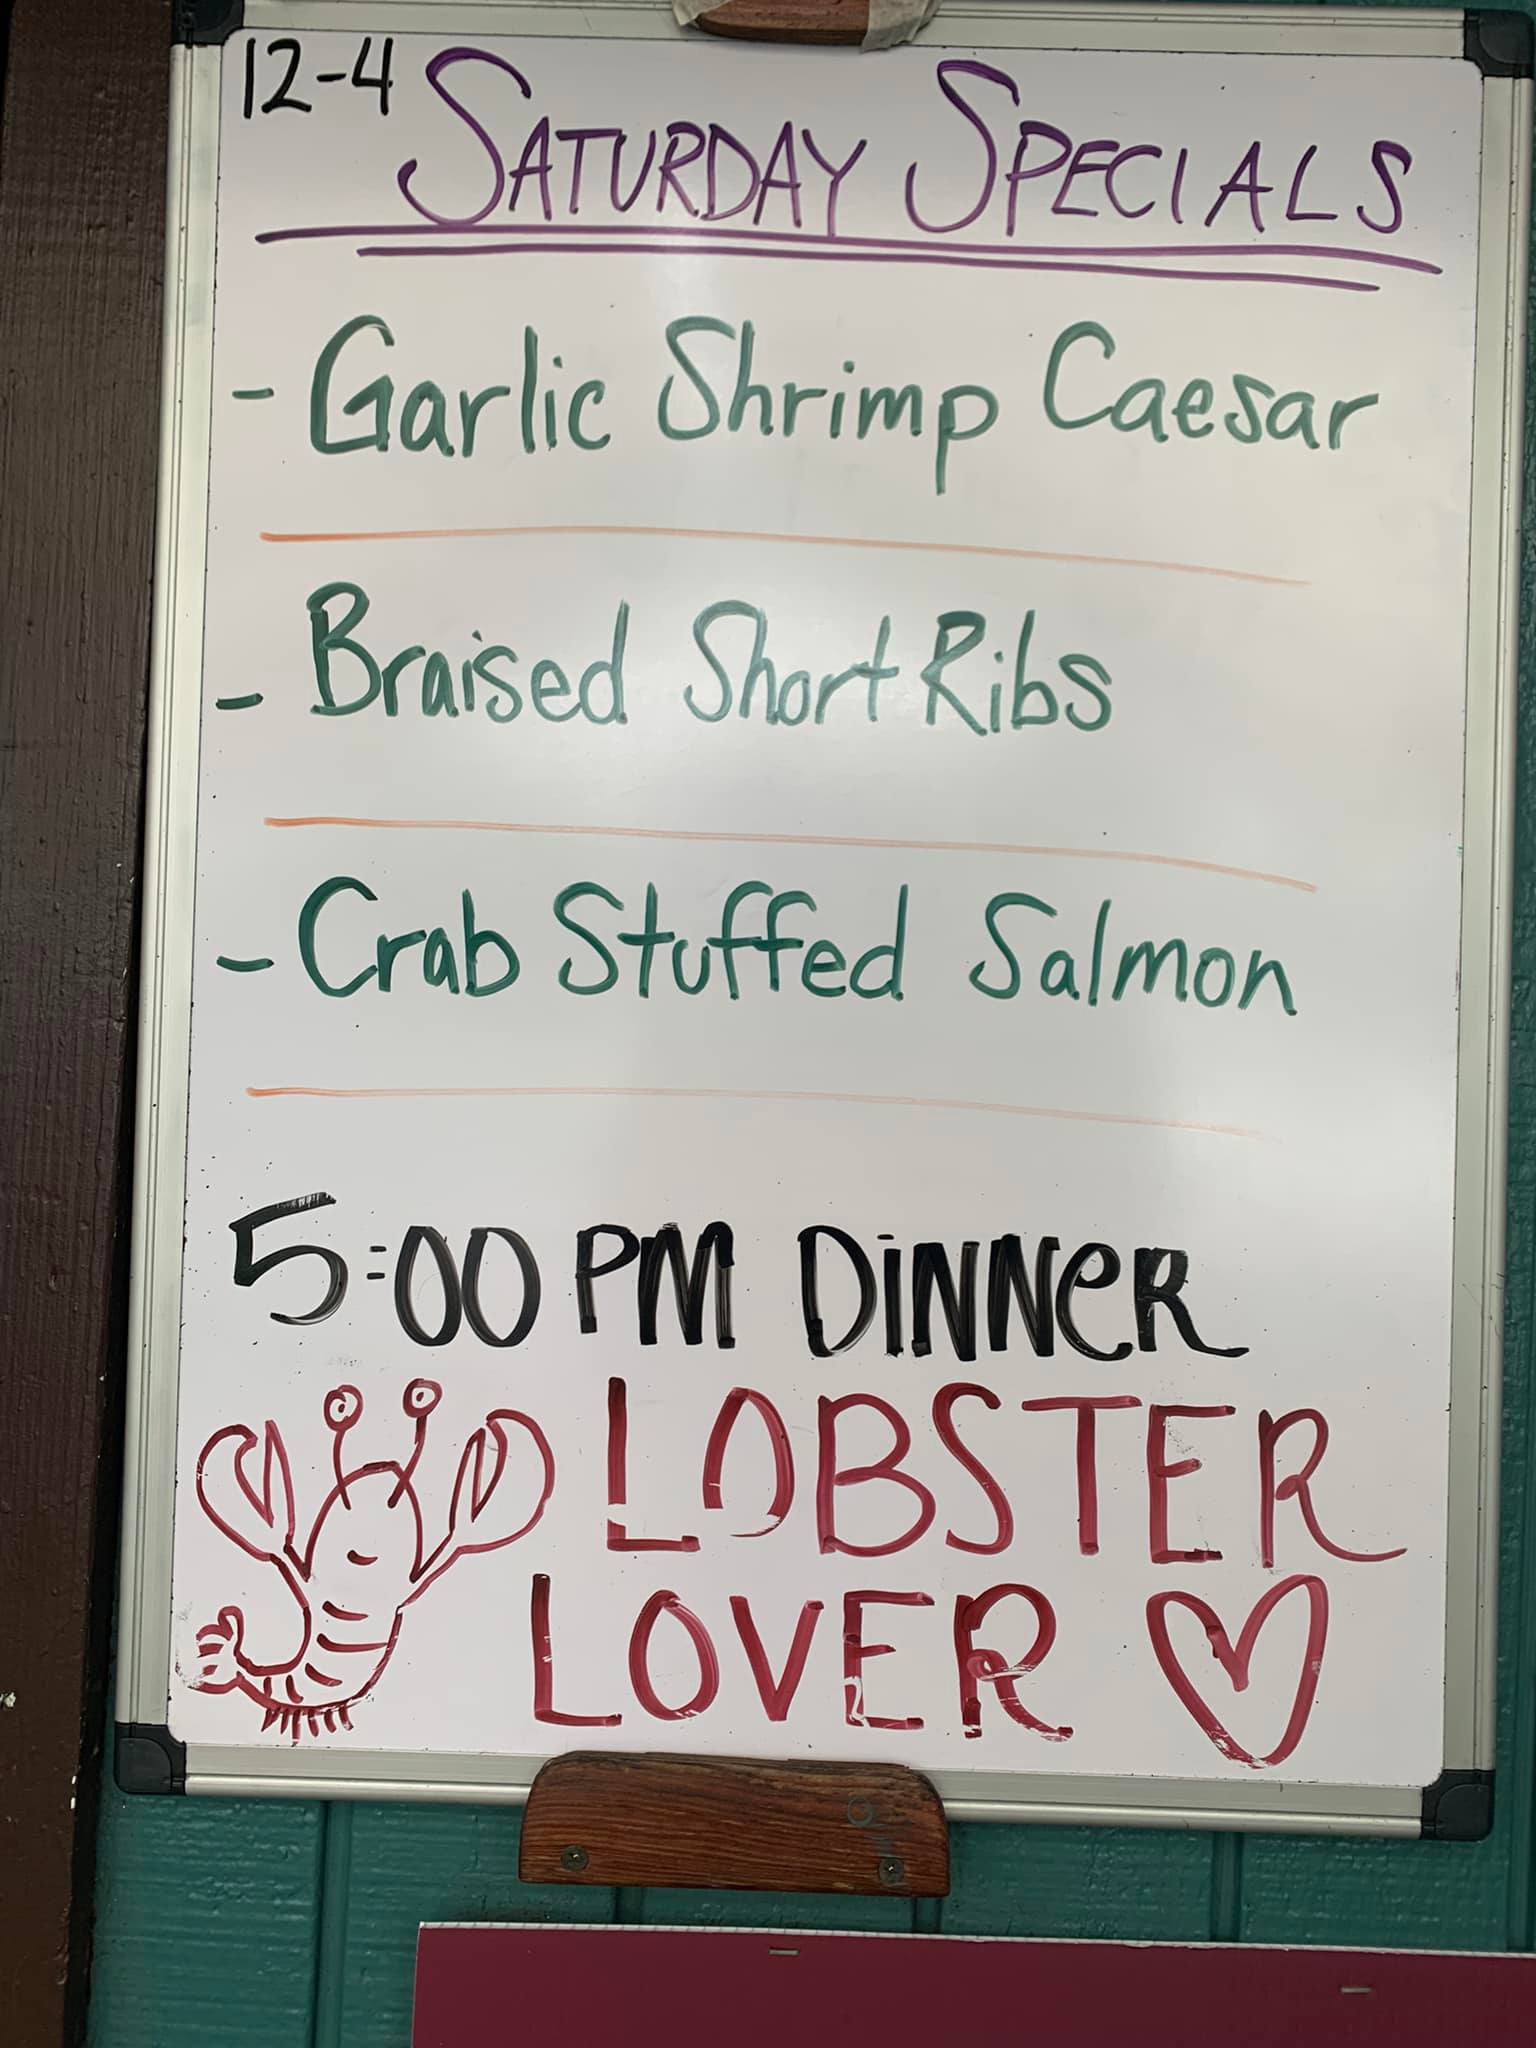 12-4 SATURDAY SPECIALS
- Garlic Shrimp Caesar
- Braised Short Ribs
- Crab Stuffed Salmon
5:00 PM DiNNeR
LOBSTER
LOVER